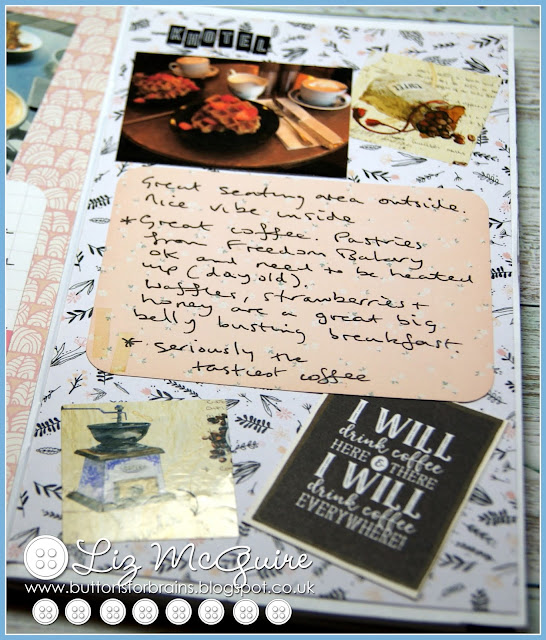 KHOTEL
Great seating area outside.
Nice vibe inside
* Great coffee. Pastries
from Freedom Bakery
ok and need to be heated
up (day old).
Waffles, strawberries +
honey are a great big
belly busting breakfast.
* seriously the
tastiest coffee
I WILL
drink coffee
HERE & THERE
I WILL
drink coffee
EVERYWHERE!
Liz McGuire
www.buttonsforbrains.blogspot.co.uk